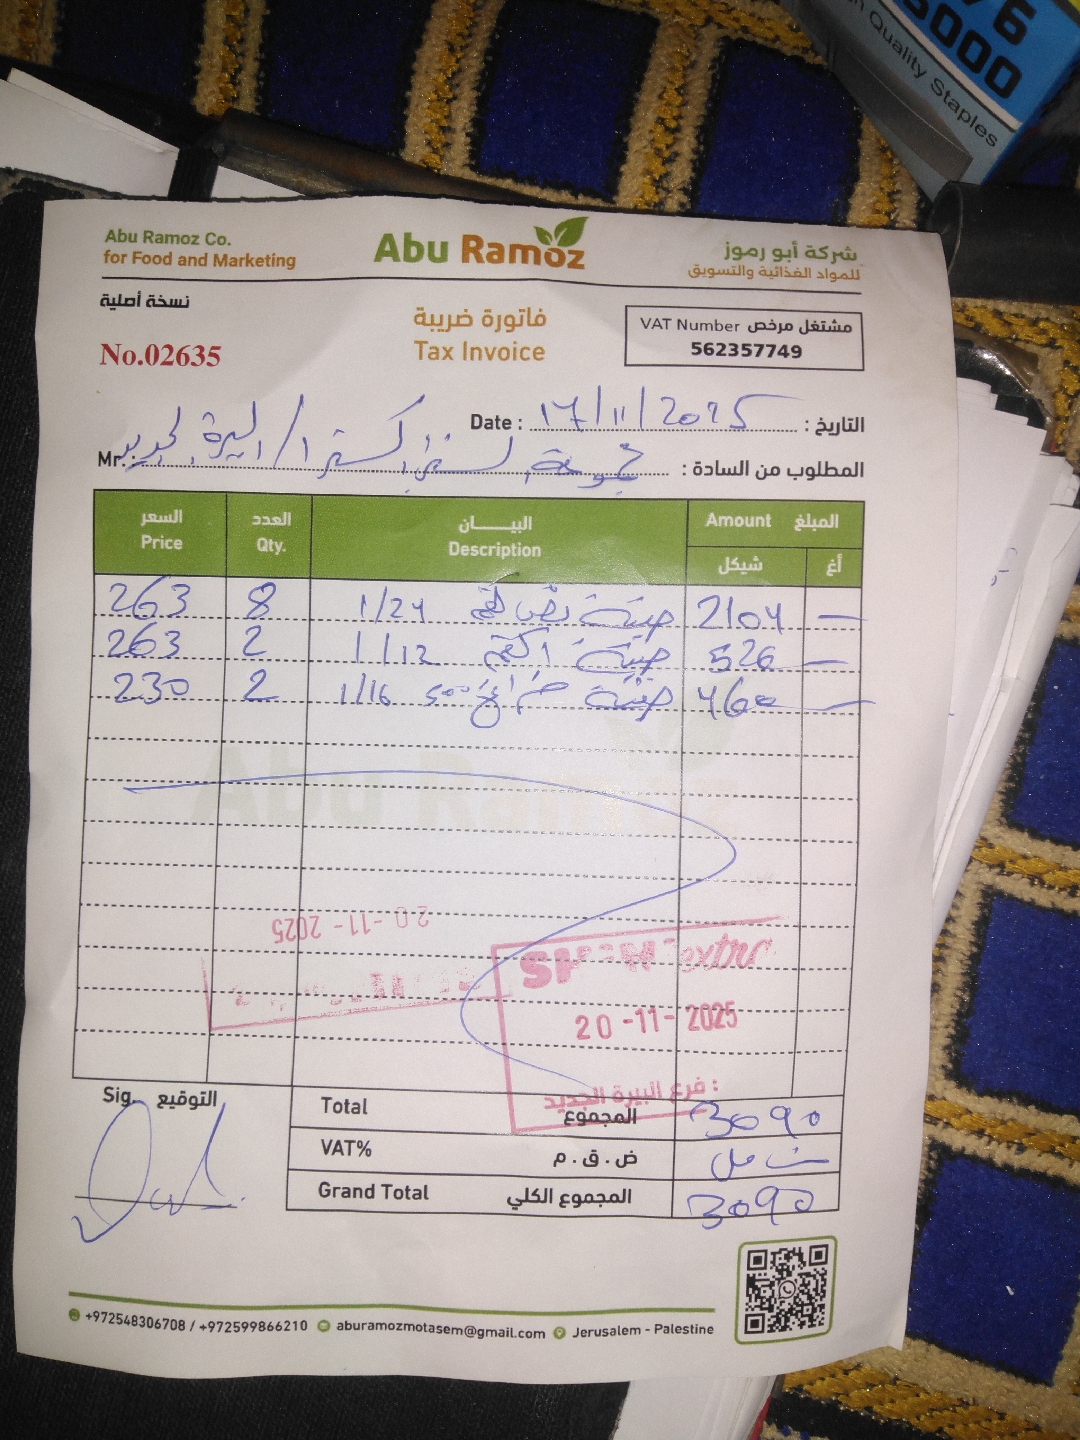 76
5000
n Quality Staples
Abu Ramoz Co.
for Food and Marketing
Abu Ramoz
شركة أبو رموز
للمواد الغذائية والتسويق
نسخة أصلية
No.02635
فاتورة ضريبة
Tax Invoice
VAT Number مشتغل مرخص
562357749
Date : 17/11/2025 التاريخ :
Mr. اكسترا / البيرة الجديد المطلوب من السادة :
السعر العدد البيـــــان المبلغ Amount
Price Qty. Description شيكل أغ
263 8 1/24 صينية 2104 —
263 2 1/12 صينية 526 —
230 2 1/16 500 صينية 460 —
Abu Ramoz
20-11-2025
extra
20-11-2025
فرع البيرة الجديد :
Sig. التوقيع
Total المجموع 3090
VAT% ض.ق.م شامل
Grand Total المجموع الكلي 3090
+972548306708 / +972599866210 aburamozmotasem@gmail.com Jerusalem - Palestine